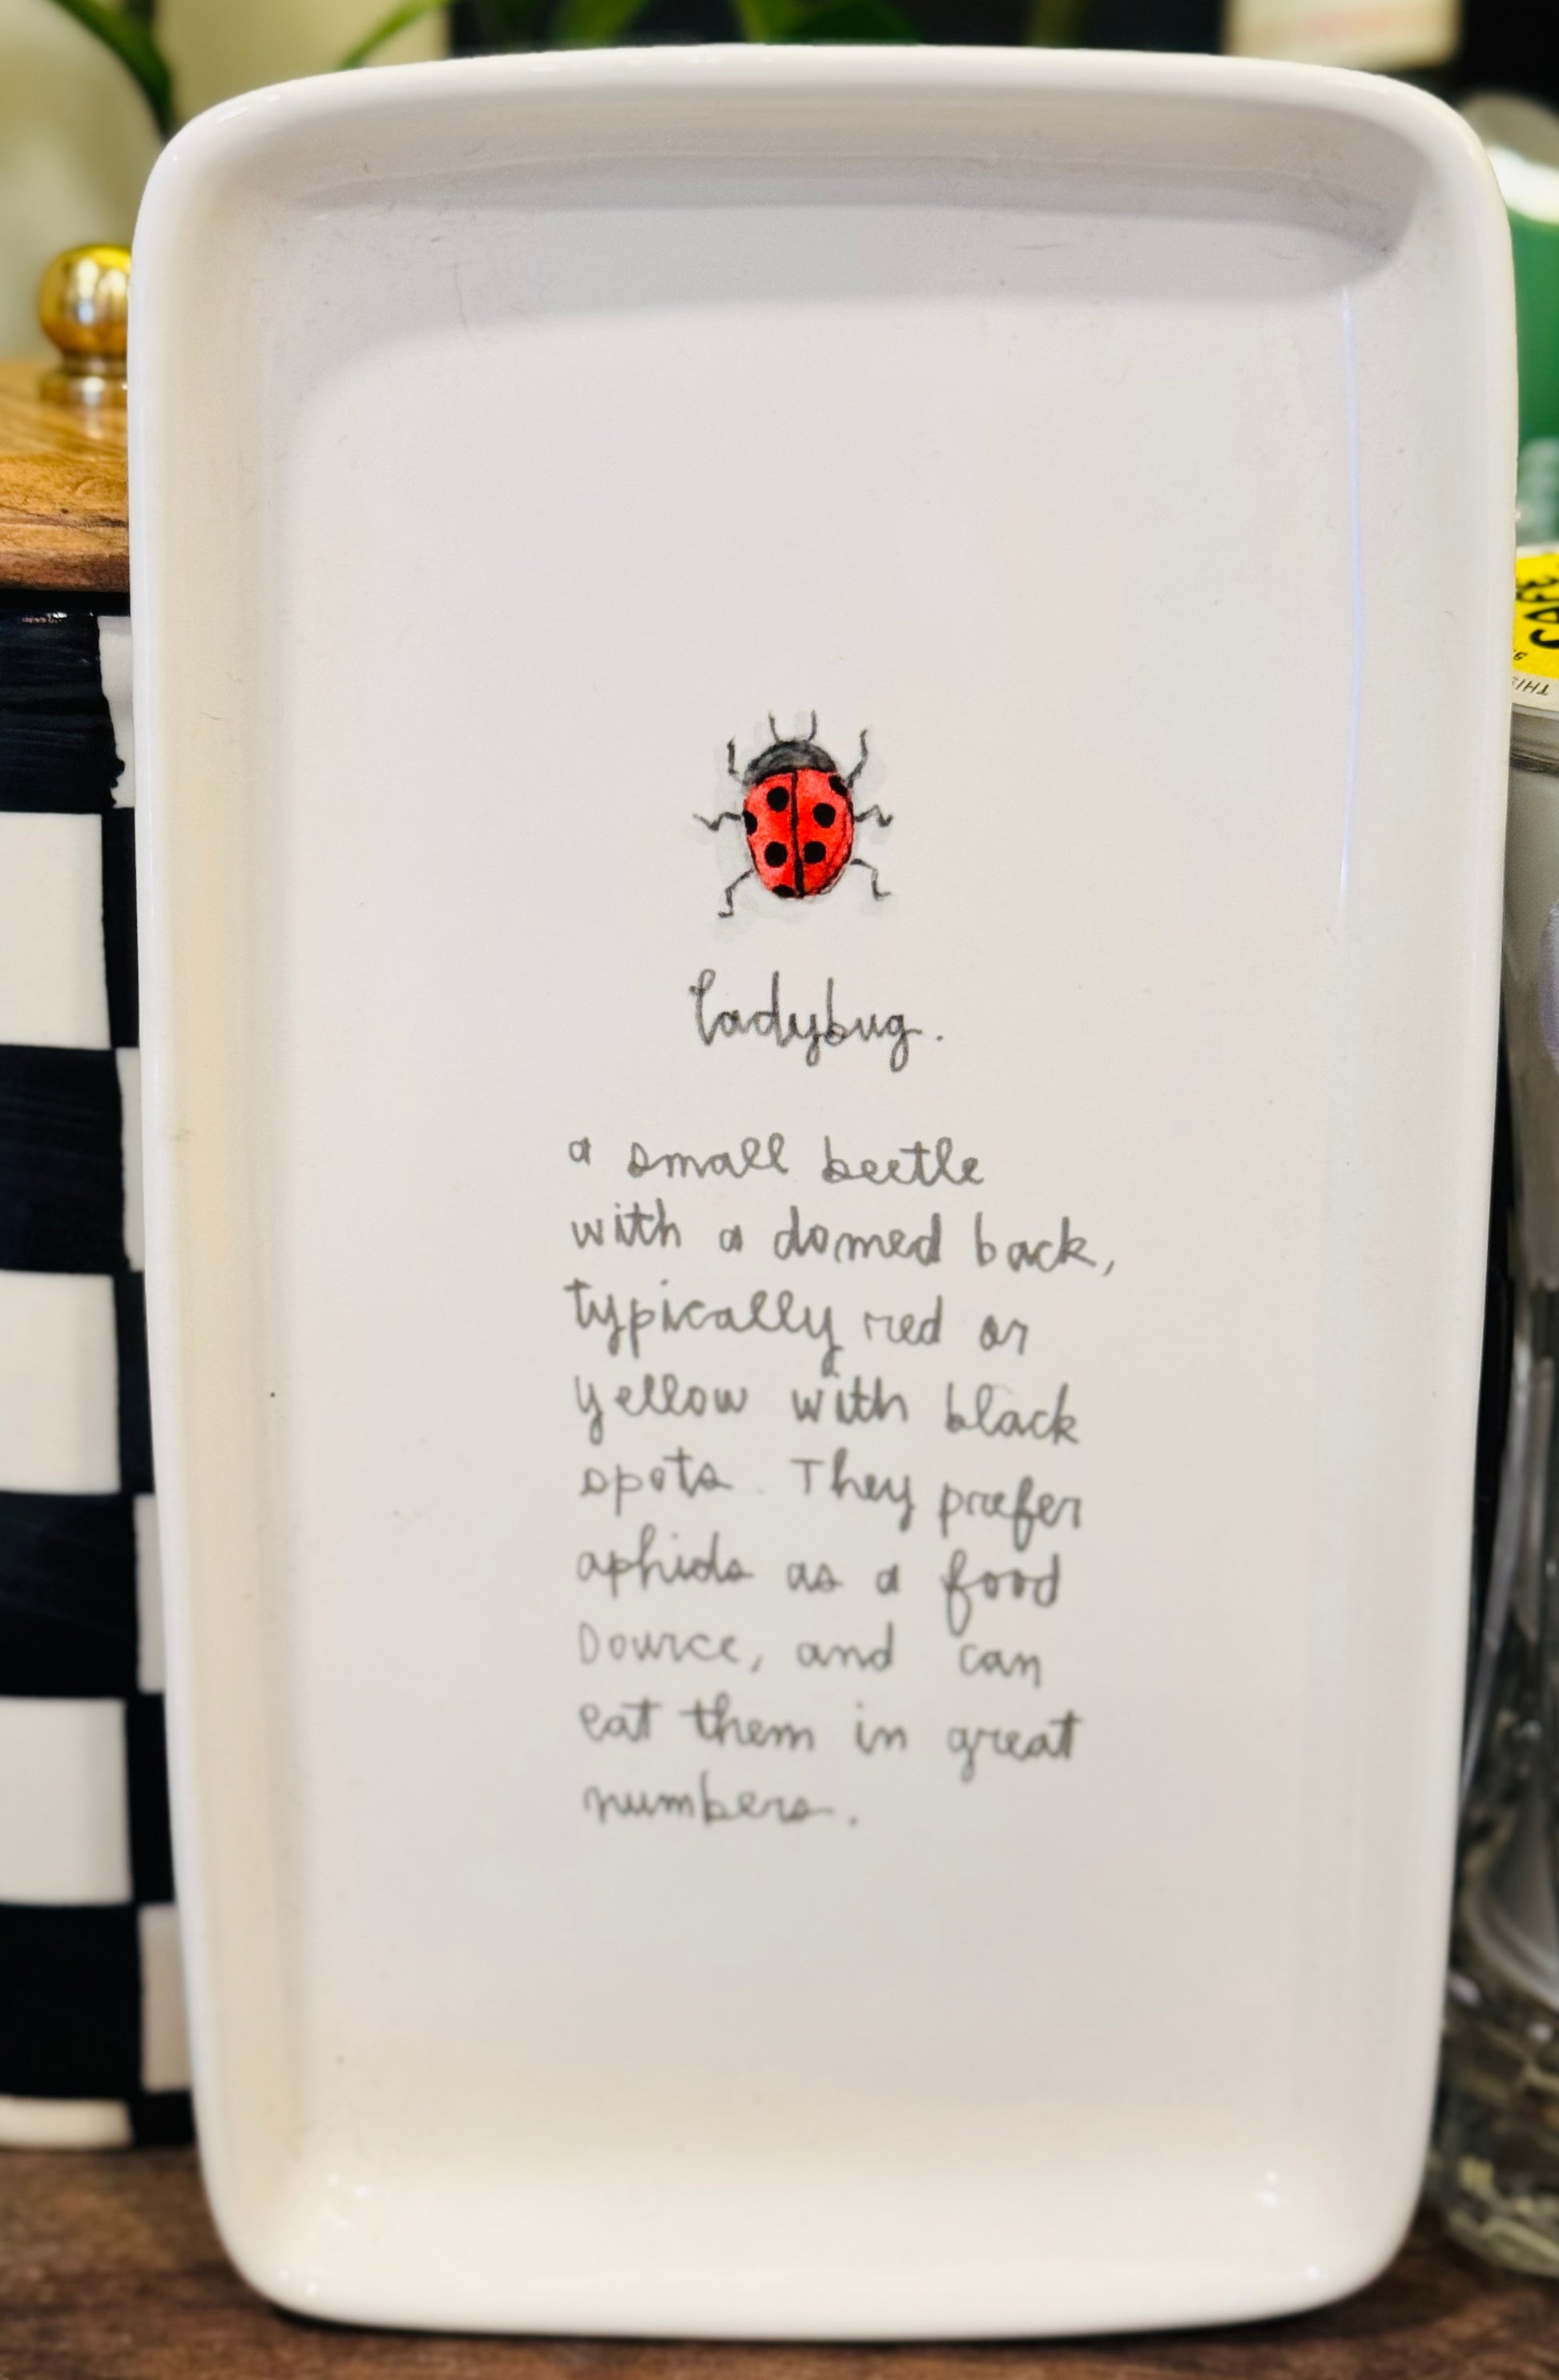 ladybug.
a small beetle
with a domed back,
typically red or
yellow with black
spots. They prefer
aphids as a food
source, and can
eat them in great
numbers.